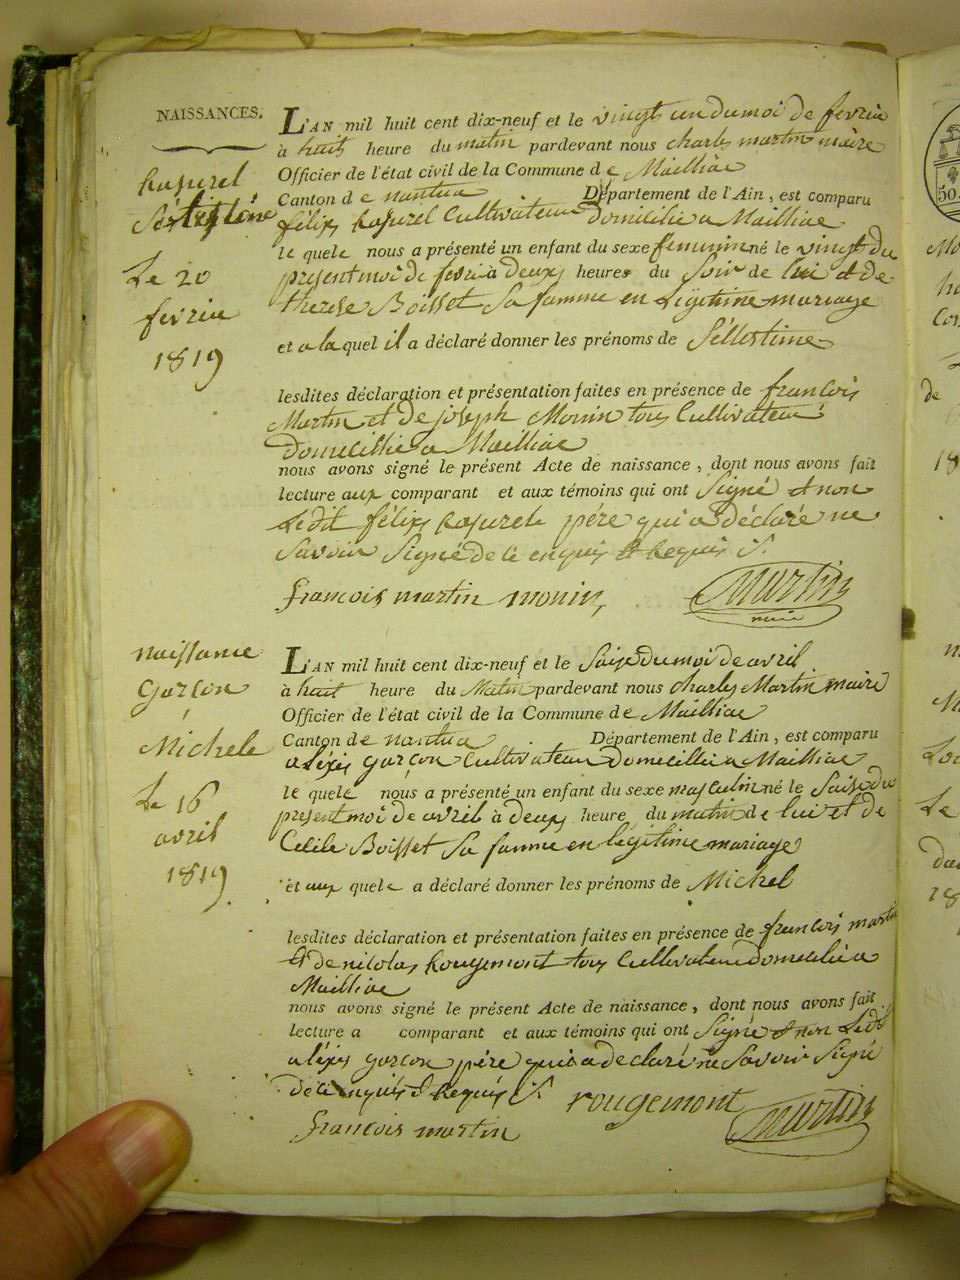 NAISSANCES.
L'AN mil huit cent dix-neuf et le vingt un du moi de fevrie
à huit heure du matin pardevant nous charles martin maire
Officier de l'état civil de la Commune de Mailliac
Canton de nantua Département de l'Ain, est comparu
félix Cultivateur domicilie a Mailliac
le quele nous a présenté un enfant du sexe feminin né le vingt du
present moi de fevri à deux heures du Soir de lui et de
therese Boisset Sa famme en Legitime mariage
et a la quel il a déclaré donner les prénoms de Sellestine
Le 20
fevrie
1819
lesdites déclaration et présentation faites en présence de francois
Martin et de joseph Monin tous Cultivateur
Domecillie a Mailliac
nous avons signé le présent Acte de naissance, dont nous avons fait
lecture aux comparant et aux témoins qui ont Signé et non
Ledit félix pére qui a déclaré ne
Savoir Signé de ce enquis et Requis S.
francois martin monin, Martin
maire
naissance
garcon
Michele
Le 16
avril
1819
L'AN mil huit cent dix-neuf et le Saise du moi de avril
à huit heure du Matin pardevant nous charles Martin maire
Officier de l'état civil de la Commune de Mailliac
Canton de nantua Département de l'Ain, est comparu
aléxis garcon Cultivateur Domecillie a Mailliac
le quele nous a présenté un enfant du sexe masculin né le Saise du
present moi de avril à deux heure du matin de lui et de
Celile Boisset Sa famme en légitime mariage
et aux quele a déclaré donner les prénoms de Michel
lesdites déclaration et présentation faites en présence de francois martin
et de nicolas Rougemont tous Cultivateur domecilié a
Mailliac
nous avons signé le présent Acte de naissance, dont nous avons fait
lecture a comparant et aux témoins qui ont Signé et non Ledit
aléxis garcon pére qui a declaré ne Savoir Signé
de ce enquis et Requis S. rougemont Martin
francois martin